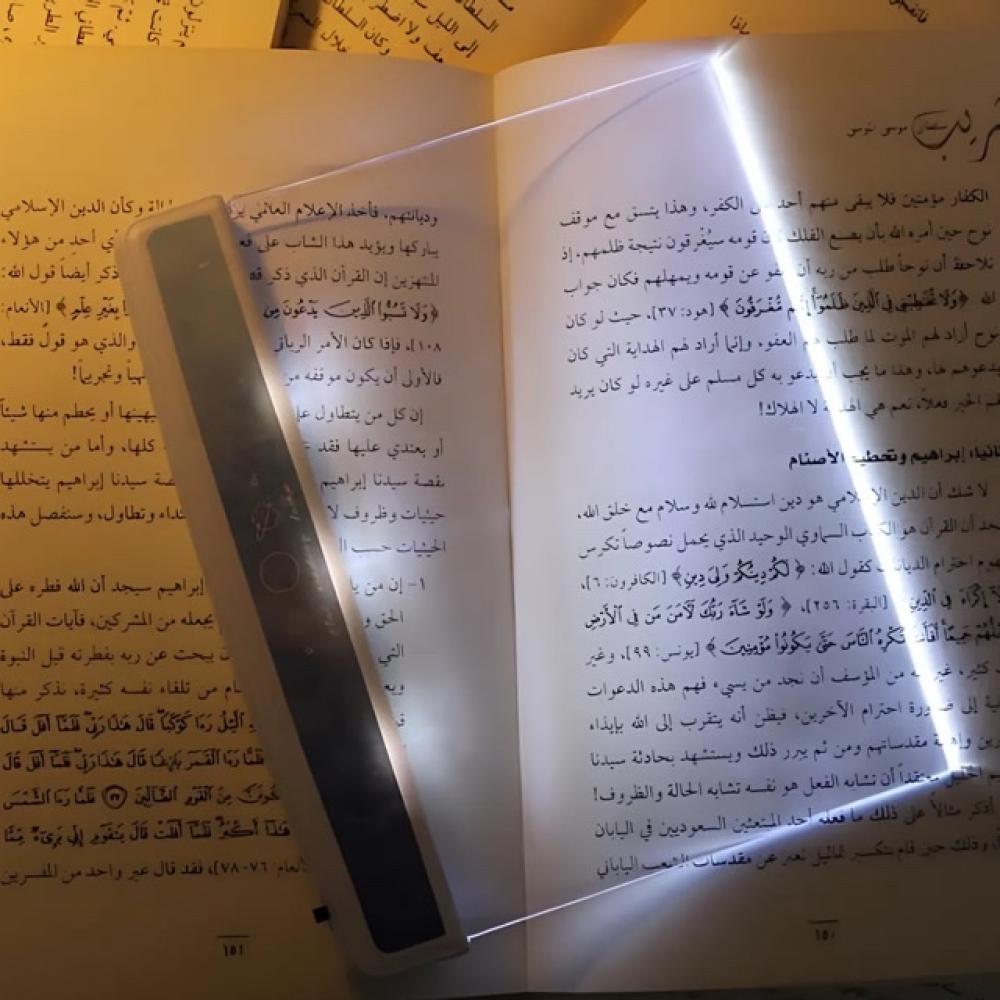 السلطان
إلى الليل
وكان السلطان
خلال
ماذا
سلطان موسى الموسى
الكفار مؤمنين فلا يبقى منهم أحد على الكفر، وهذا يتسق مع موقف
نوح حين أمره الله بأن يصنع الفلك قومه سيُغرقون نتيجة ظلمهم. إذ
نلاحظ أن نوحاً طلب من ربه أن عن قومه ويمهلهم فكان جواب
الله ﴿وَلَا تُخَاطِبْنِي فِي الَّذِينَ ظَلَمُوا إِنَّهُم مُّغْرَقُونَ﴾ [هود: ٣٧]، حيث لو كان
نوح أراد لهم الموت لما طلب لهم العفو، وإنما أراد لهم الهداية التي كان
يدعوهم لها، وهذا ما يجب أن يدعو به كل مسلم على غيره لو كان يريد
لهم الخير فعلاً، نعم هي الهداية لا الهلاك!
ثانياً: إبراهيم وتحطيم الأصنام
لا شك أن الدين الإسلامي هو دين استسلام لله وسلام مع خلق الله،
نجد أن القرآن هو الكتاب السماوي الوحيد الذي يحمل نصوصاً تكرس
مفهوم احترام الديانات كقول الله: ﴿لَكُمْ دِينُكُمْ وَلِيَ دِينِ﴾ [الكافرون: ٦]،
إِكْرَاهَ فِي الدِّينِ [البقرة: ٢٥٦]، ﴿وَلَوْ شَاءَ رَبُّكَ لَآمَنَ مَن فِي الْأَرْضِ
كُلُّهُمْ جَمِيعًا أَفَأَنتَ تُكْرِهُ النَّاسَ حَتَّى يَكُونُوا مُؤْمِنِينَ﴾ [يونس: ٩٩]، وغير
كثير، غير أنه من المؤسف أن نجد من يسيء فهم هذه الدعوات
إلى ضرورة احترام الآخرين، فيظن أنه يتقرب إلى الله بإيذاء
وإهانة مقدساتهم ومن ثم يبرر ذلك ويستشهد بحادثة سيدنا
الخليل معتقداً أن تشابه الفعل هو نفسه تشابه الحالة والظروف!
أذكر مثالاً على ذلك ما فعله أحد المبتعثين السعوديين في اليابان
وذلك حين قام بتكسير تماثيل تعبر عن مقدسات الشعب الياباني
١٥٠
وديانتهم. فأخذ الإعلام العالمي وكأن الدين الإسلامي
يباركها ويؤيد هذا الشاب على أي أحدٍ من هؤلاء
المنتهزين إن القرآن الذي ذكر ذكر أيضاً قول الله:
﴿وَلَا تَسُبُّوا الَّذِينَ يَدْعُونَ مِن بِغَيْرِ عِلْمٍ﴾ [الأنعام:
١٠٨]، فإذا كان الأمر الرباني والذي هو قولٌ فقط،
فالأولى أن يكون موقفه وتجريماً!
إن كل من يتطاول يهينها أو يحطم منها شيئاً
أو يعتدي عليها فقد كلها، وأما من يستشهد
بقصة سيدنا إبراهيم سيدنا إبراهيم يتخللها
حيثيات وظروف لا وتطاول، وسنفصل هذه
الحيثيات حسب
١- إن من إبراهيم سيجد أن الله فطره على
الحق يجعله من المشركين، فآيات القرآن
التي يبحث عن ربه بفطرته قبل النبوة
من تلقاء نفسه كثيرة، نذكر منها
الَّيْلُ رَءَا كَوْكَبًا قَالَ هَذَا رَبِّي فَلَمَّا أَفَلَ قَالَ
فَلَمَّا رَءَا الْقَمَرَ بَازِغًا قَالَ هَذَا رَبِّي فَلَمَّا أَفَلَ قَالَ
مِنَ الْقَوْمِ الضَّالِّينَ ٧٧ فَلَمَّا رَءَا الشَّمْسَ
هَذَا أَكْبَرُ فَلَمَّا أَفَلَتْ قَالَ يَا قَوْمِ إِنِّي بَرِيءٌ مِّمَّا
[الأنعام: ٧٦-٧٨]، فقد قال غير واحد من المفسرين
١٥١